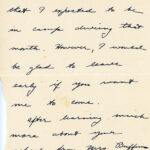 that I expected to be
in camp during that
month. However, I would
be glad to leave
early if you want
me to come.
After learning much
more about your
from Mrs. Buffum